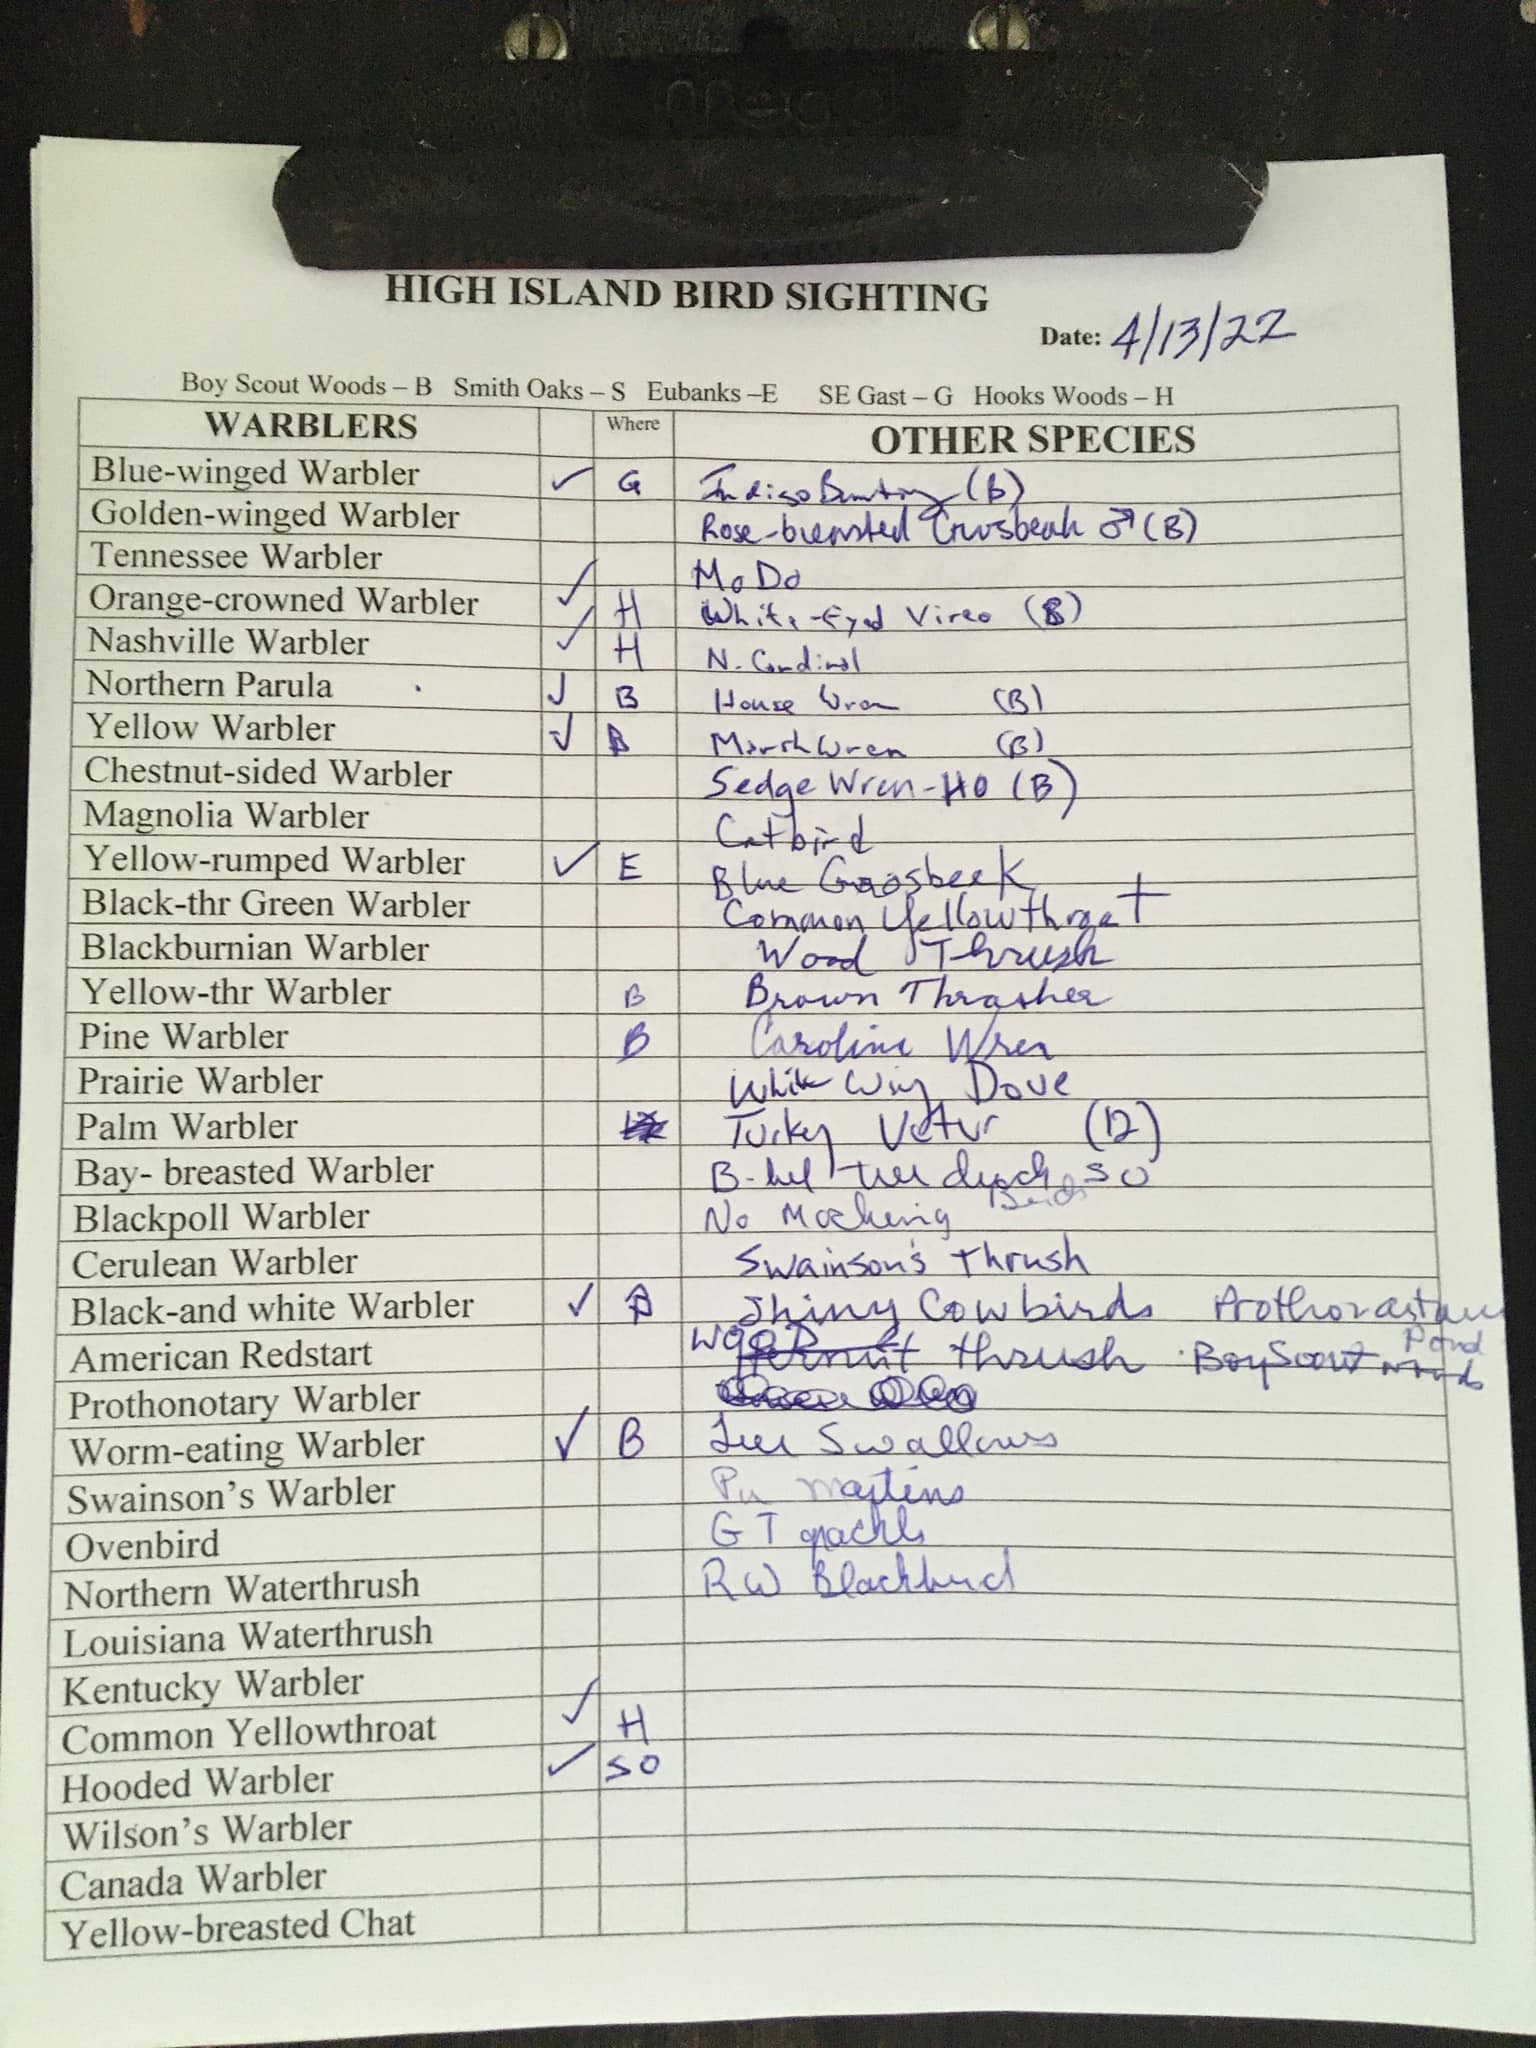 Mead
HIGH ISLAND BIRD SIGHTING
Date: 4/13/22
Boy Scout Woods – B Smith Oaks – S Eubanks –E SE Gast – G Hooks Woods – H
WARBLERS Where OTHER SPECIES
Blue-winged Warbler ✓ G Indigo Bunting (B)
Golden-winged Warbler Rose-breasted Grosbeak ♂ (B)
Tennessee Warbler MoDo
Orange-crowned Warbler ✓ H White-Eyed Vireo (B)
Nashville Warbler ✓ H N. Cardinal
Northern Parula ✓ B House Wren (B)
Yellow Warbler ✓ B Marsh Wren (B)
Chestnut-sided Warbler Sedge Wren-HO (B)
Magnolia Warbler Catbird
Yellow-rumped Warbler ✓ E Blue Grosbeak
Black-thr Green Warbler Common Yellowthroat
Blackburnian Warbler Wood Thrush
Yellow-thr Warbler B Brown Thrasher
Pine Warbler B Carolina Wren
Prairie Warbler White Wing Dove
Palm Warbler Turkey (12)
Bay- breasted Warbler duck SO
Blackpoll Warbler No Mocking Bird
Cerulean Warbler Swainson's thrush
Black-and white Warbler ✓ B Shiny Cowbirds
American Redstart Wood thrush Boy Scout Woods Pond
Prothonotary Warbler
Worm-eating Warbler ✓ B Tree Swallows
Swainson’s Warbler Pu Martins
Ovenbird GT grackle
Northern Waterthrush RW Blackbird
Louisiana Waterthrush
Kentucky Warbler
Common Yellowthroat ✓ H
Hooded Warbler ✓ SO
Wilson’s Warbler
Canada Warbler
Yellow-breasted Chat